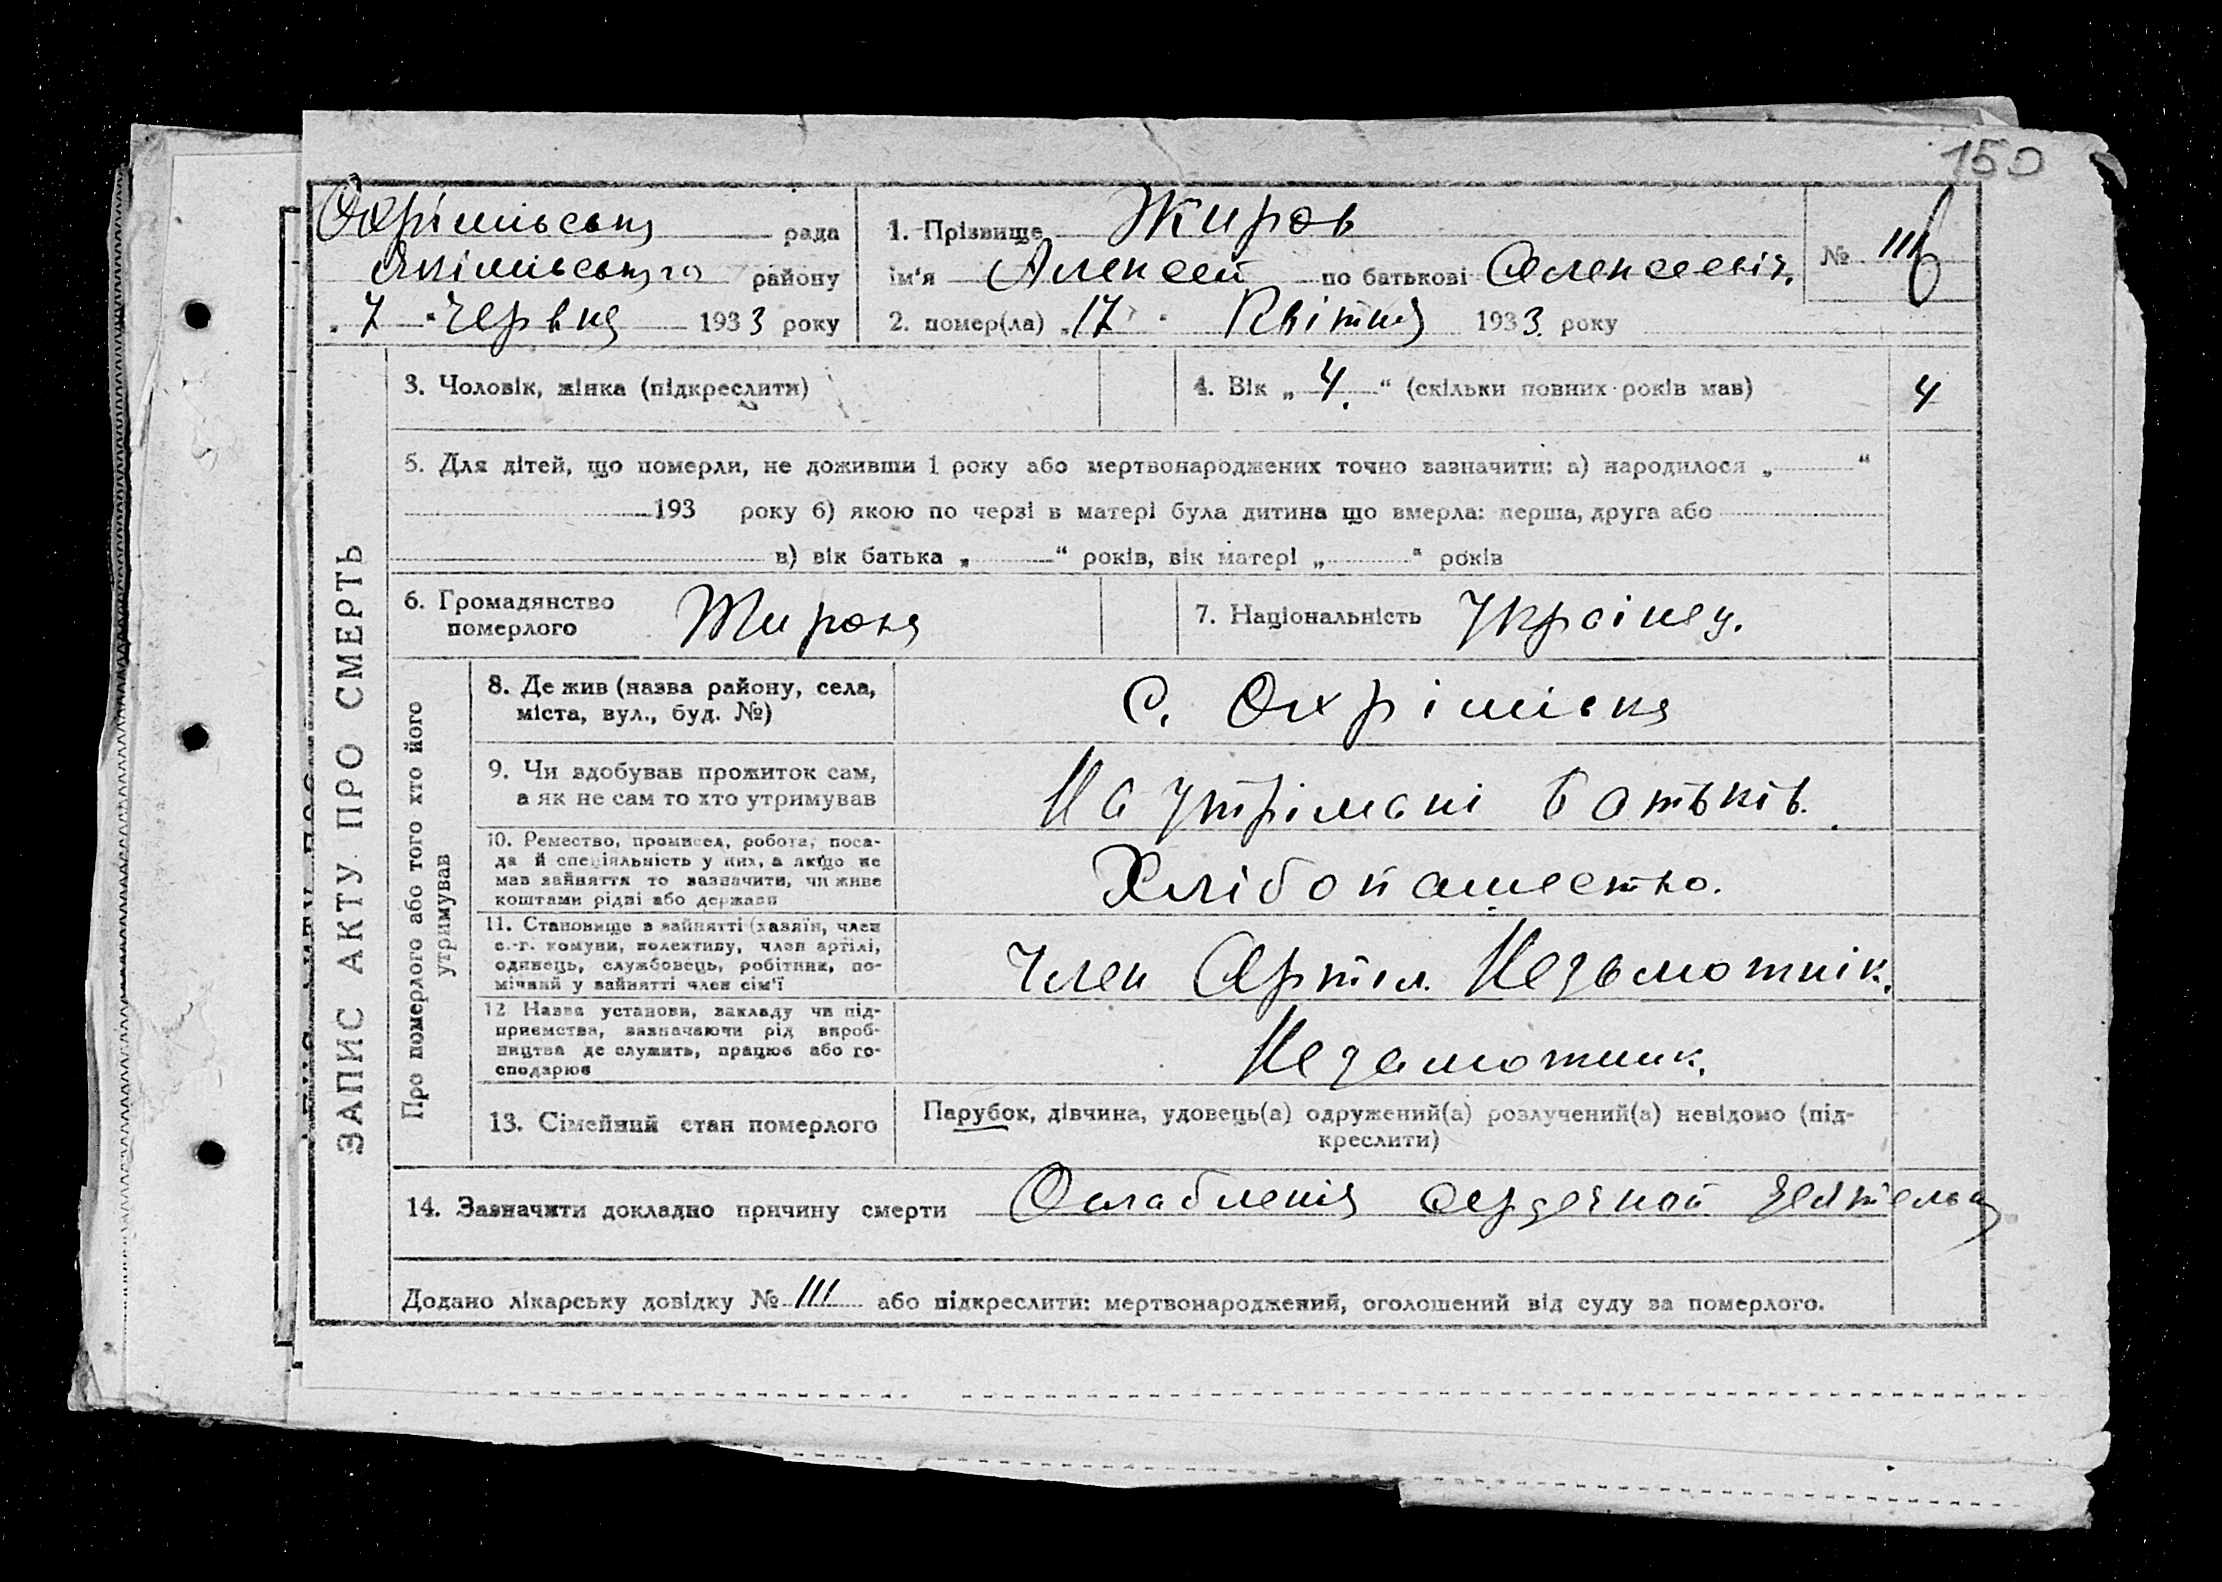 150
Охрімівська рада
Якімівського району
„ 7 " Червня 1933 року
1. Прізвище Жиров
ім'я Алексей по батькові Алексеевіч.
2. помер(ла) „ 17 " Квітня 1933 року
№ 111
3. Чоловік, жінка (підкреслити)
4. Вік „ 4. " (скільки повних років мав)
4
5. Для дітей, що померли, не доживши 1 року або мертвонароджених точно зазначити: а) народилося „ "
193 року б) якою по черзі в матері була дитина що вмерла: перша, друга або
в) вік батька „ " років, вік матері „ " років
6. Громадянство
померлого
7. Національність Украінец.
ЗАПИС АКТУ ПРО СМЕРТЬ
Про померлого або того хто його
утримував
8. Де жив (назва району, села,
міста, вул., буд. №)
с. Охрімівка
9. Чи здобував прожиток сам,
а як не сам то хто утримував
На утрімані батьків.
10. Ремество, промисел, робота, поса-
да й спеціяльність у них, а якщо не
мав зайняття то зазначити, чи живе
коштами рідні або держави
Хлібопашество.
11. Становище в зайнятті (хазяїн, член
с.-г. комуни, колективу, член артілі,
одинець, службовець, робітник, по-
мічний у зайнятті член сім'ї
Член Артіл. Незьможнік.
12 Назва установи, закладу чи під-
приємства, зазначаючи рід вироб-
ництва де служить, працює або го-
сподарює
Незаможник.
13. Сімейний стан померлого
Парубок, дівчина, удовець(а) одружений(а) розлучений(а) невідомо (під-
креслити)
14. Зазначити докладно причину смерти Ослабленія сердечной деятельн
Додано лікарську довідку № 111 або підкреслити: мертвонароджений, оголошений від суду за померлого.